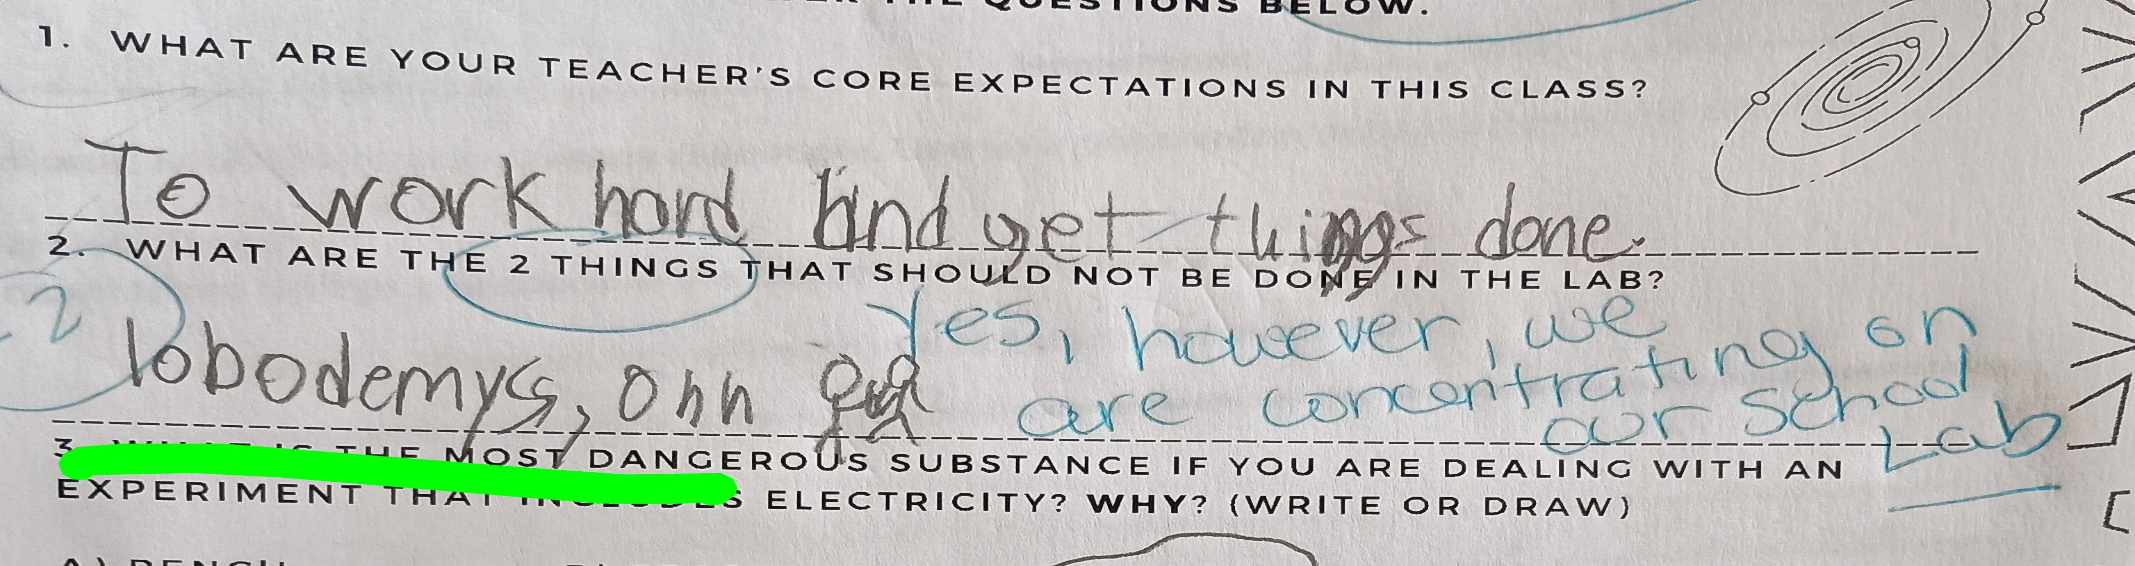 QUESTIONS BELOW.
1. WHAT ARE YOUR TEACHER'S CORE EXPECTATIONS IN THIS CLASS?
To work hard and get things done.
2. WHAT ARE THE 2 THINGS THAT SHOULD NOT BE DONE IN THE LAB?
-2
Yes, however, we
are concentrating on
our school
Lab
THE MOST DANGEROUS SUBSTANCE IF YOU ARE DEALING WITH AN
EXPERIMENT THAT INCLUDES ELECTRICITY? WHY? (WRITE OR DRAW)